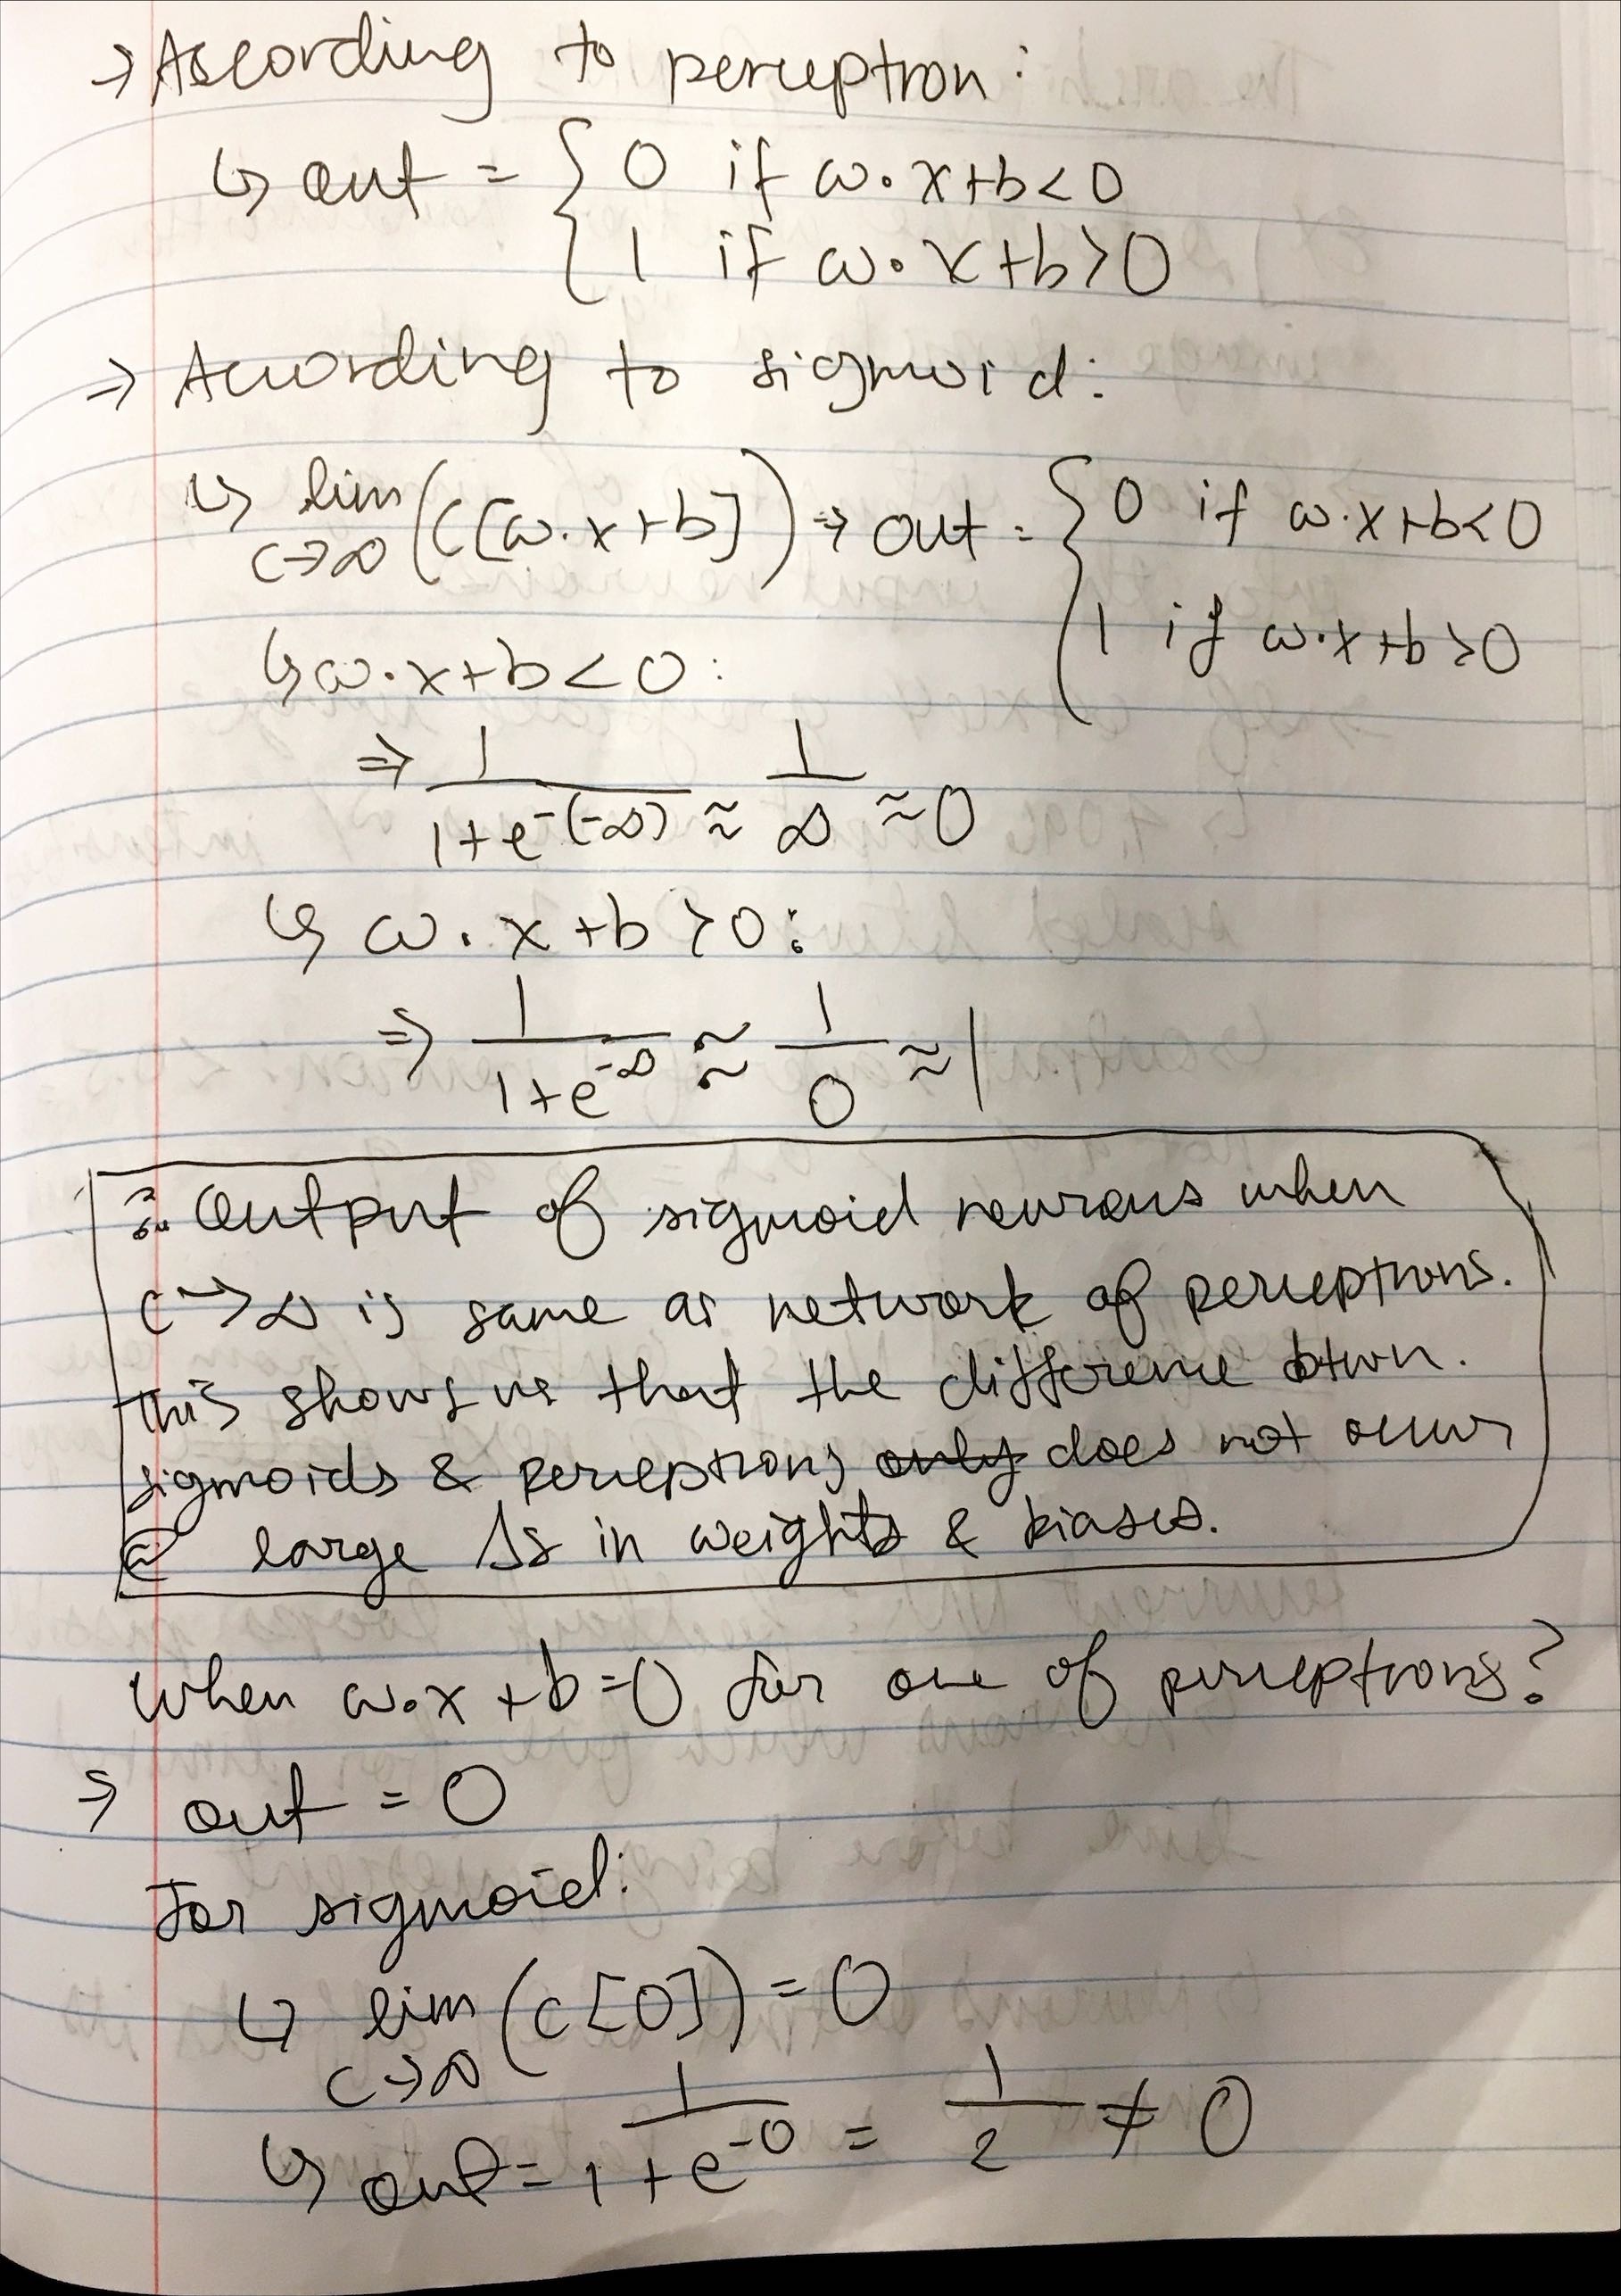 → According to perceptron:
↳ out = { 0 if w·x+b<0
1 if w·x+b>0
⇒ According to sigmoid:
↳ lim c→∞ (c[w·x+b]) ⇒ out = { 0 if w·x+b<0
1 if w·x+b>0
↳ w·x+b<0:
⇒ 1/(1+e^-(-∞)) ≈ 1/∞ ≈ 0
↳ w·x+b>0:
⇒ 1/(1+e^-∞) ≈ 1/0 ≈ 1
∴ Output of sigmoid neurons when
c→∞ is same as network of perceptrons.
This shows us that the difference btwn.
sigmoids & perceptrons only does not occur
@ large Δs in weights & biases.
When w·x+b=0 for one of perceptrons?
⇒ out = 0
For sigmoid:
↳ lim c→∞ (c[0]) = 0
↳ out = 1/(1+e^-0) = 1/2 ≠ 0